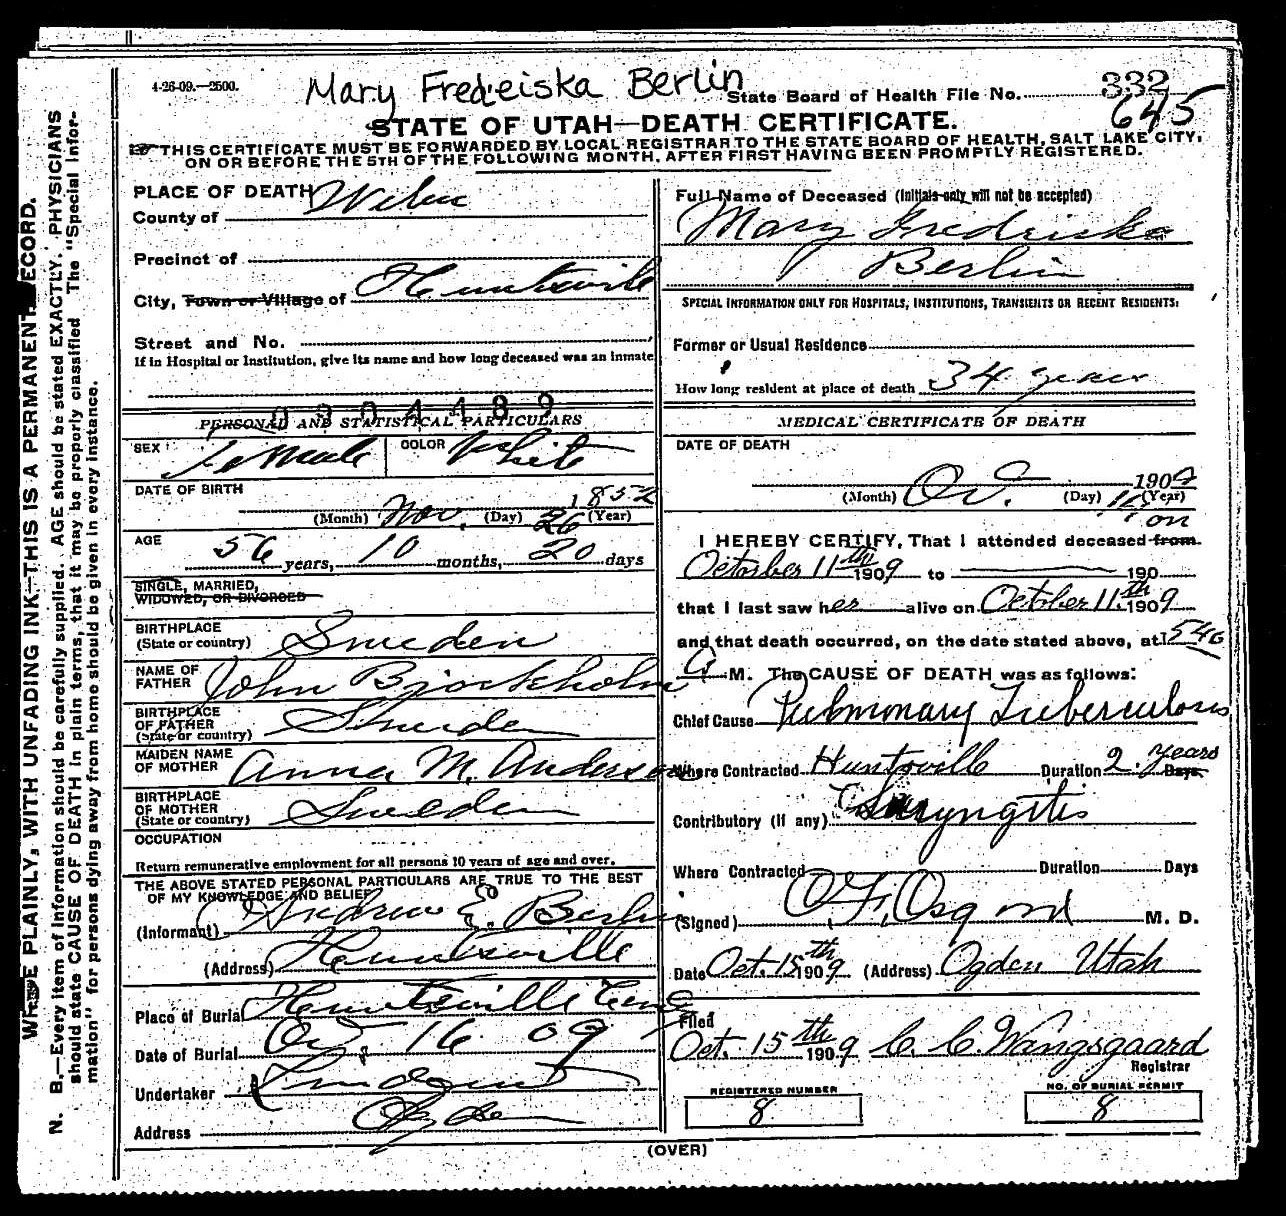 4-26-09.—2500.
Mary Fredreiska Berlin
State Board of Health File No. 332
645
STATE OF UTAH—DEATH CERTIFICATE.
THIS CERTIFICATE MUST BE FORWARDED BY LOCAL REGISTRAR TO THE STATE BOARD OF HEALTH, SALT LAKE CITY,
ON OR BEFORE THE 5TH OF THE FOLLOWING MONTH, AFTER FIRST HAVING BEEN PROMPTLY REGISTERED.
WRITE PLAINLY, WITH UNFADING INK—THIS IS A PERMANENT RECORD.
N. B.—Every item of information should be carefully supplied. AGE should be stated EXACTLY. PHYSICIANS
should state CAUSE OF DEATH in plain terms, that it may be properly classified. The "Special Infor-
mation" for persons dying away from home should be given in every instance.
PLACE OF DEATH
County of Weber
Precinct of
City, Town or Village of Huntsville
Street and No.
If in Hospital or Institution, give its name and how long deceased was an inmate
0904489
PERSONAL AND STATISTICAL PARTICULARS
SEX Female COLOR White
DATE OF BIRTH
(Month) Nov. (Day) 26 (Year) 1852
AGE
56 years, 10 months, 20 days
SINGLE, MARRIED,
WIDOWED, OR DIVORCED
BIRTHPLACE
(State or country) Sweden
NAME OF
FATHER John Bjorkholm
BIRTHPLACE
OF FATHER
(State or country) Sweden
MAIDEN NAME
OF MOTHER Anna M. Anderson
BIRTHPLACE
OF MOTHER
(State or country) Sweden
OCCUPATION
Return remunerative employment for all persons 10 years of age and over.
THE ABOVE STATED PERSONAL PARTICULARS ARE TRUE TO THE BEST
OF MY KNOWLEDGE AND BELIEF
(Informant) Andrew E. Berlin
(Address) Huntsville
Place of Burial Huntsville Cem
Date of Burial Oct. 16 09
Undertaker Lindquist
Address Ogden
Full Name of Deceased (Initials only will not be accepted)
Mary Fredriska
Berlin
SPECIAL INFORMATION ONLY FOR HOSPITALS, INSTITUTIONS, TRANSIENTS OR RECENT RESIDENTS:
Former or Usual Residence
How long resident at place of death 34 years
MEDICAL CERTIFICATE OF DEATH
DATE OF DEATH
(Month) Oct. (Day) (Year) 1909
on
I HEREBY CERTIFY, That I attended deceased from
October 11th 1909 to 190
that I last saw her alive on October 11th 1909
and that death occurred, on the date stated above, at 540
A M. The CAUSE OF DEATH was as follows:
Chief Cause Pulmonary Tuberculosis
Where Contracted Huntsville Duration 2. Years Days
Contributory (if any) Laryngitis
Where Contracted Duration Days
(Signed) O. F. Osgood M. D.
Date Oct. 15th 1909 (Address) Ogden Utah
Filed
Oct. 15th 1909 C. C. Wangsgaard
Registrar
REGISTERED NUMBER
8
NO. OF BURIAL PERMIT
8
(OVER)